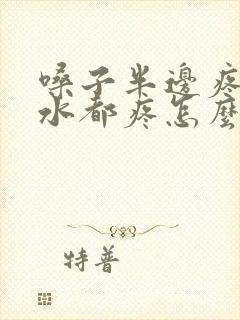 嗓子半邊疼
水都疼怎麼
特普